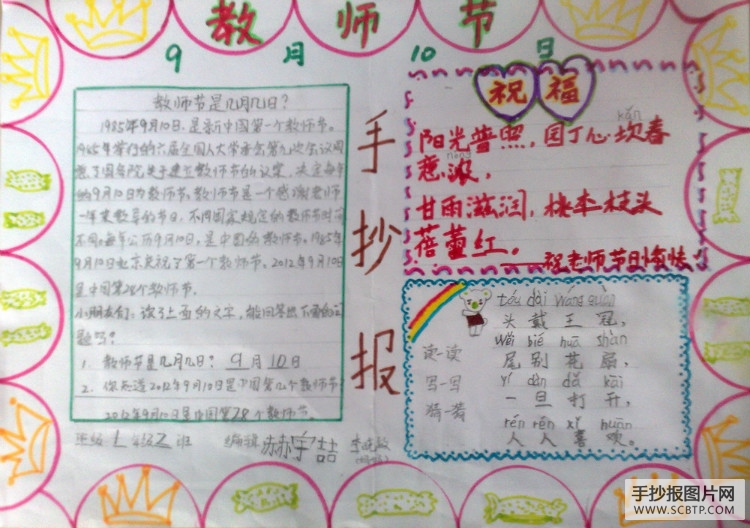 教师节
9月10日
教师节是几月几日?
1985年9月10日,是新中国第一个教师节。
1985年举行的六届全国人大常委会第九次会议同
意了国务院关于建立教师节的议案,决定每年
的9月10日为教师节。教师节是一个感谢老师
一年来教导的节日,不同国家规定的教师节时间
不同,每年公历9月10日,是中国的教师节。1985年
9月10日北京庆祝了第一个教师节。2012年9月10日
是中国第28个教师节。
小朋友们,读了上面的文字,能回答出下面的问
题吗?
1. 教师节是几月几日?9月10日
2. 你知道2012年9月10日是中国第几个教师节
2012年9月10日是中国第28个教师节。
班级 1 年级2班 编辑 赫宇喆
手抄报
祝福
kǎn
阳光普照,园丁心坎春
nóng
意浓,
甘雨滋润,桃李枝头
蓓蕾红。
祝老师节日愉快
读一读
写一写
猜一猜
tóu dài wáng guān
头戴王冠,
wěi bié huā shàn
尾别花扇,
yí dàn dǎ kāi
一旦打开,
rén rén xǐ huān
人人喜欢。
手抄报图片网
WWW.SCBTP.COM